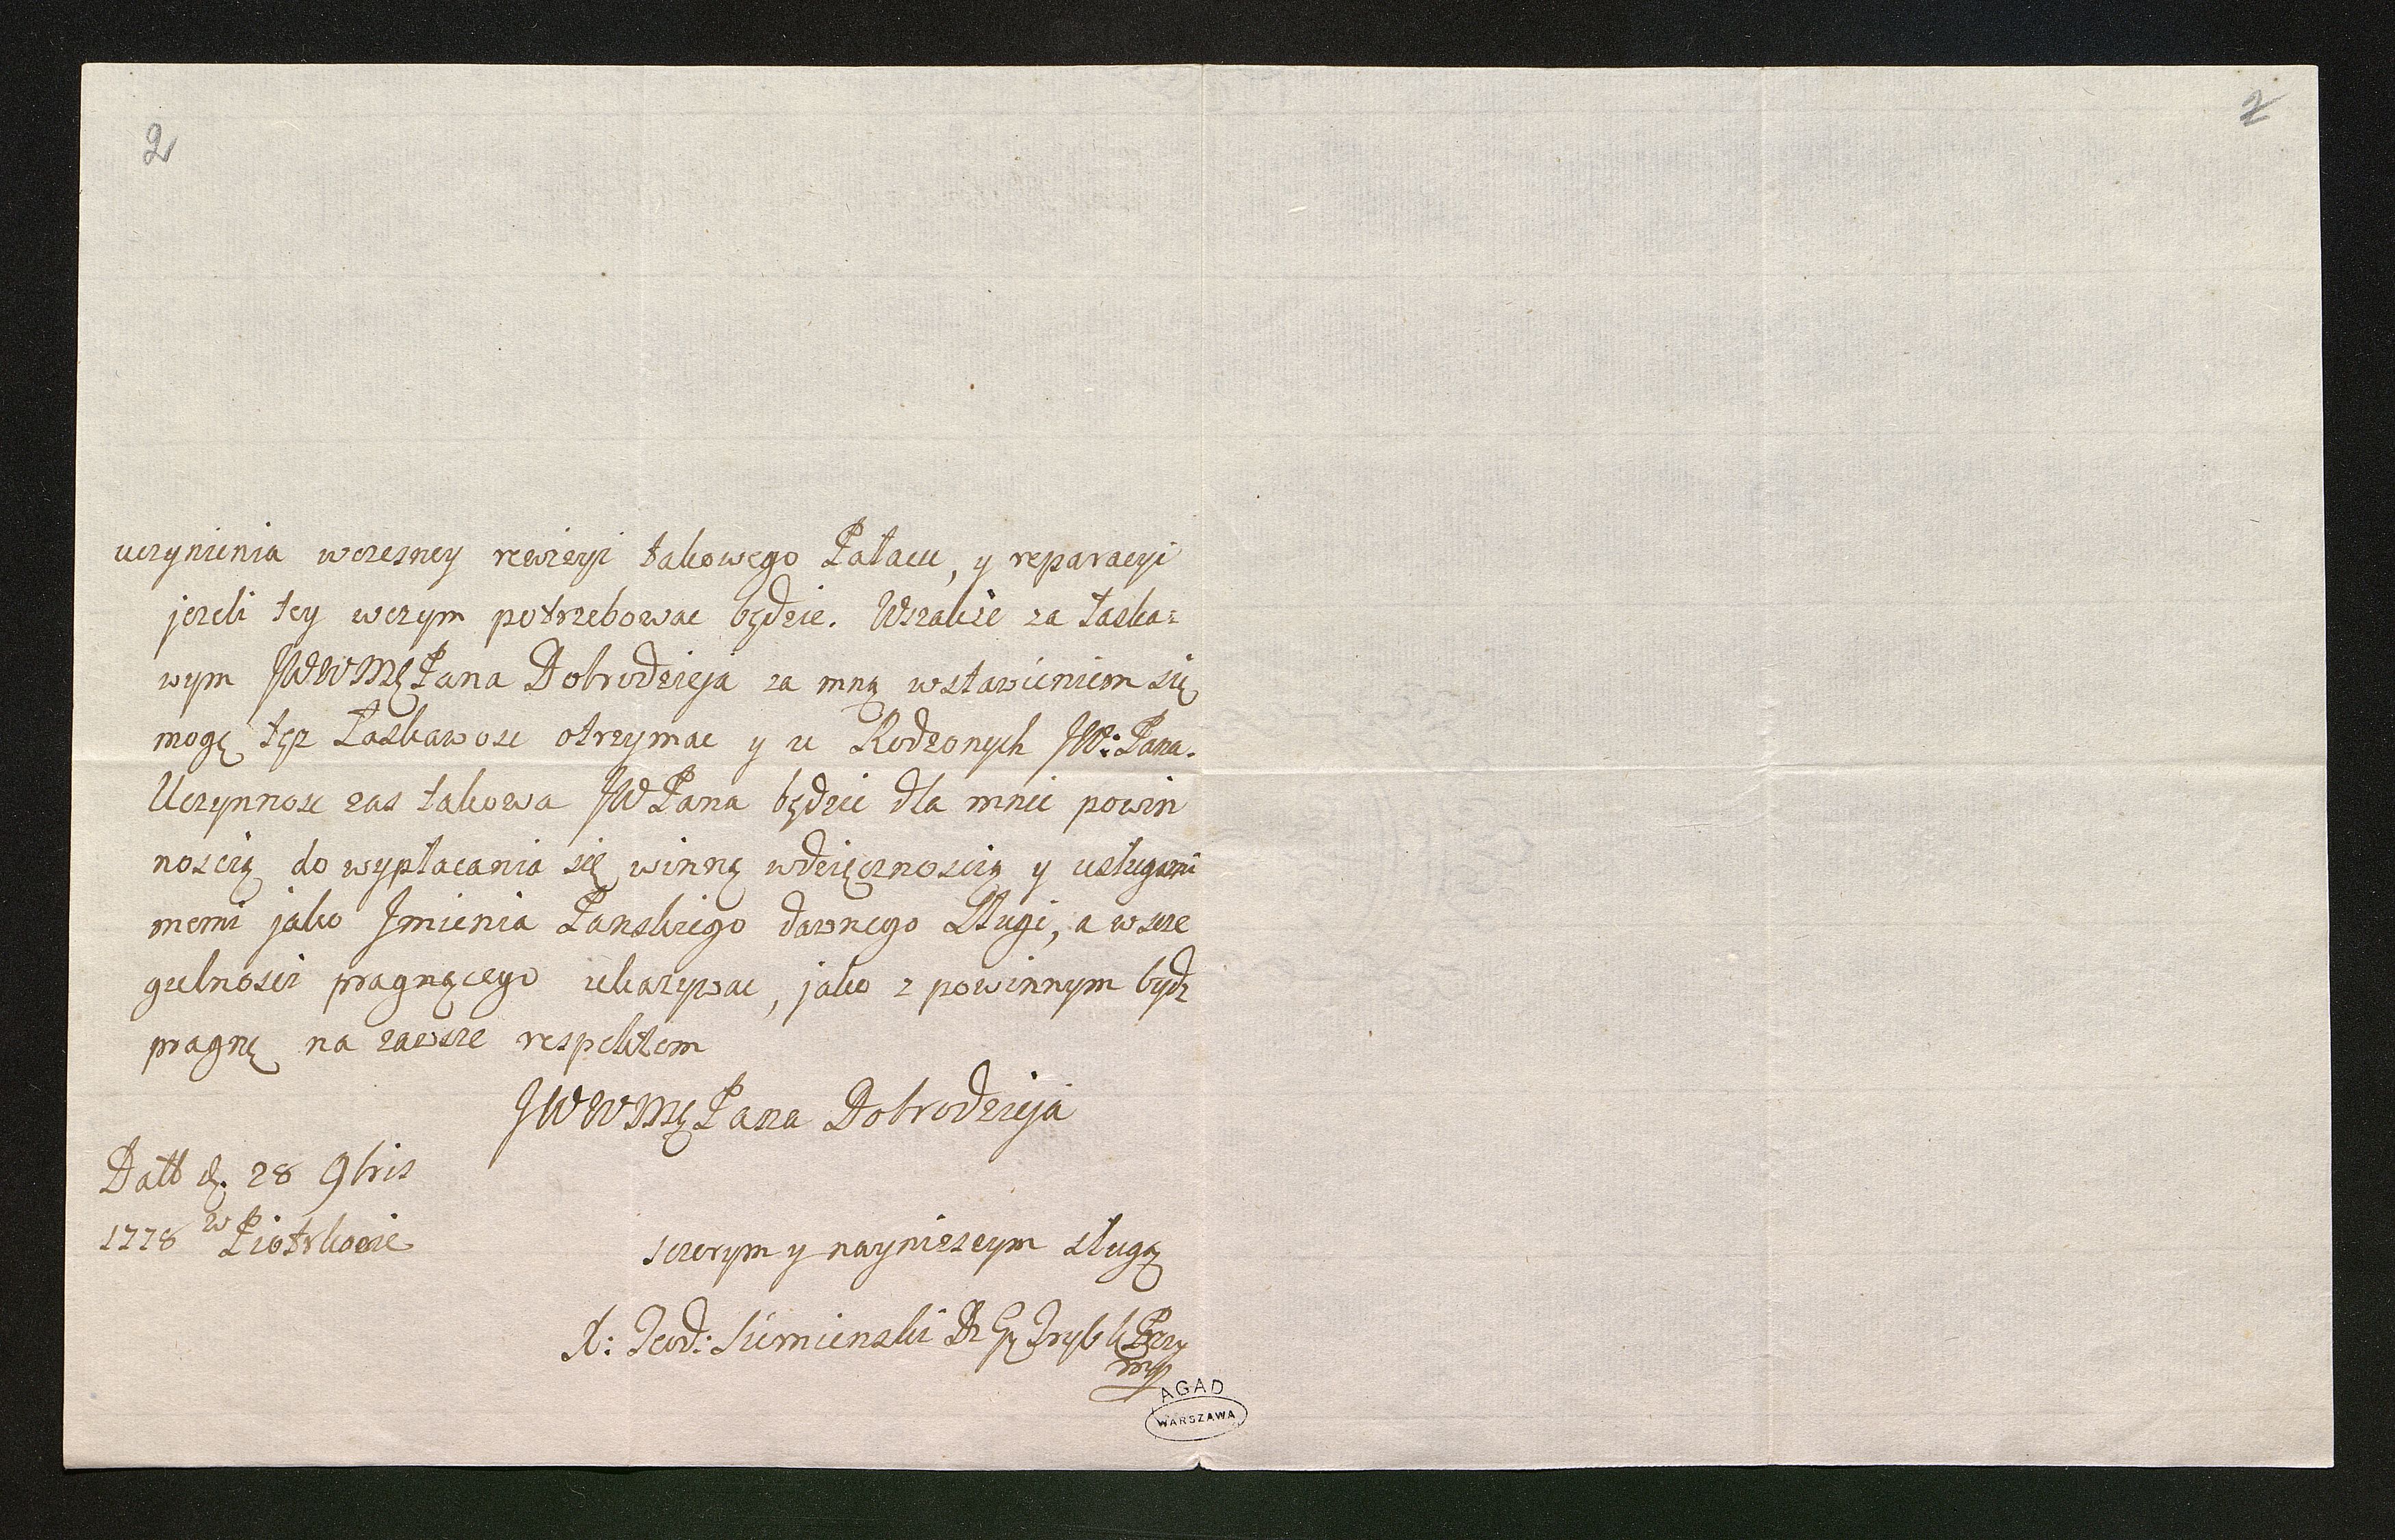 2
2
uczynienia wczesney rewizyi takowego Pałacu, y reparacyi
jezeli tey wczym potrzebowac będzie. Wszakże za łaska=
wym JWWMę Pana Dobrodzieja za mną wstawieniem się
mogę tęz Łaskawosc otrzymac y u Rodzonych JW: Pana.
Uczynnosc zas takowa JW Pana będzie dla mnie powin
noscią do wypłacania się winną wdzięcznoscią y usługami
memi jako Jmienia Panskiego dawnego Sługi, a wszcze
gulnosci pragnącego ukazywac, jako z powinnym bydz
pragnę na zawsze respektem
JWWMę Pana Dobrodzieja
Datt d. 28 9bris
1778 w Piotrkowie
szczerym y nayniższym sługą
X: Teod: Siemienski
AGAD
WARSZAWA